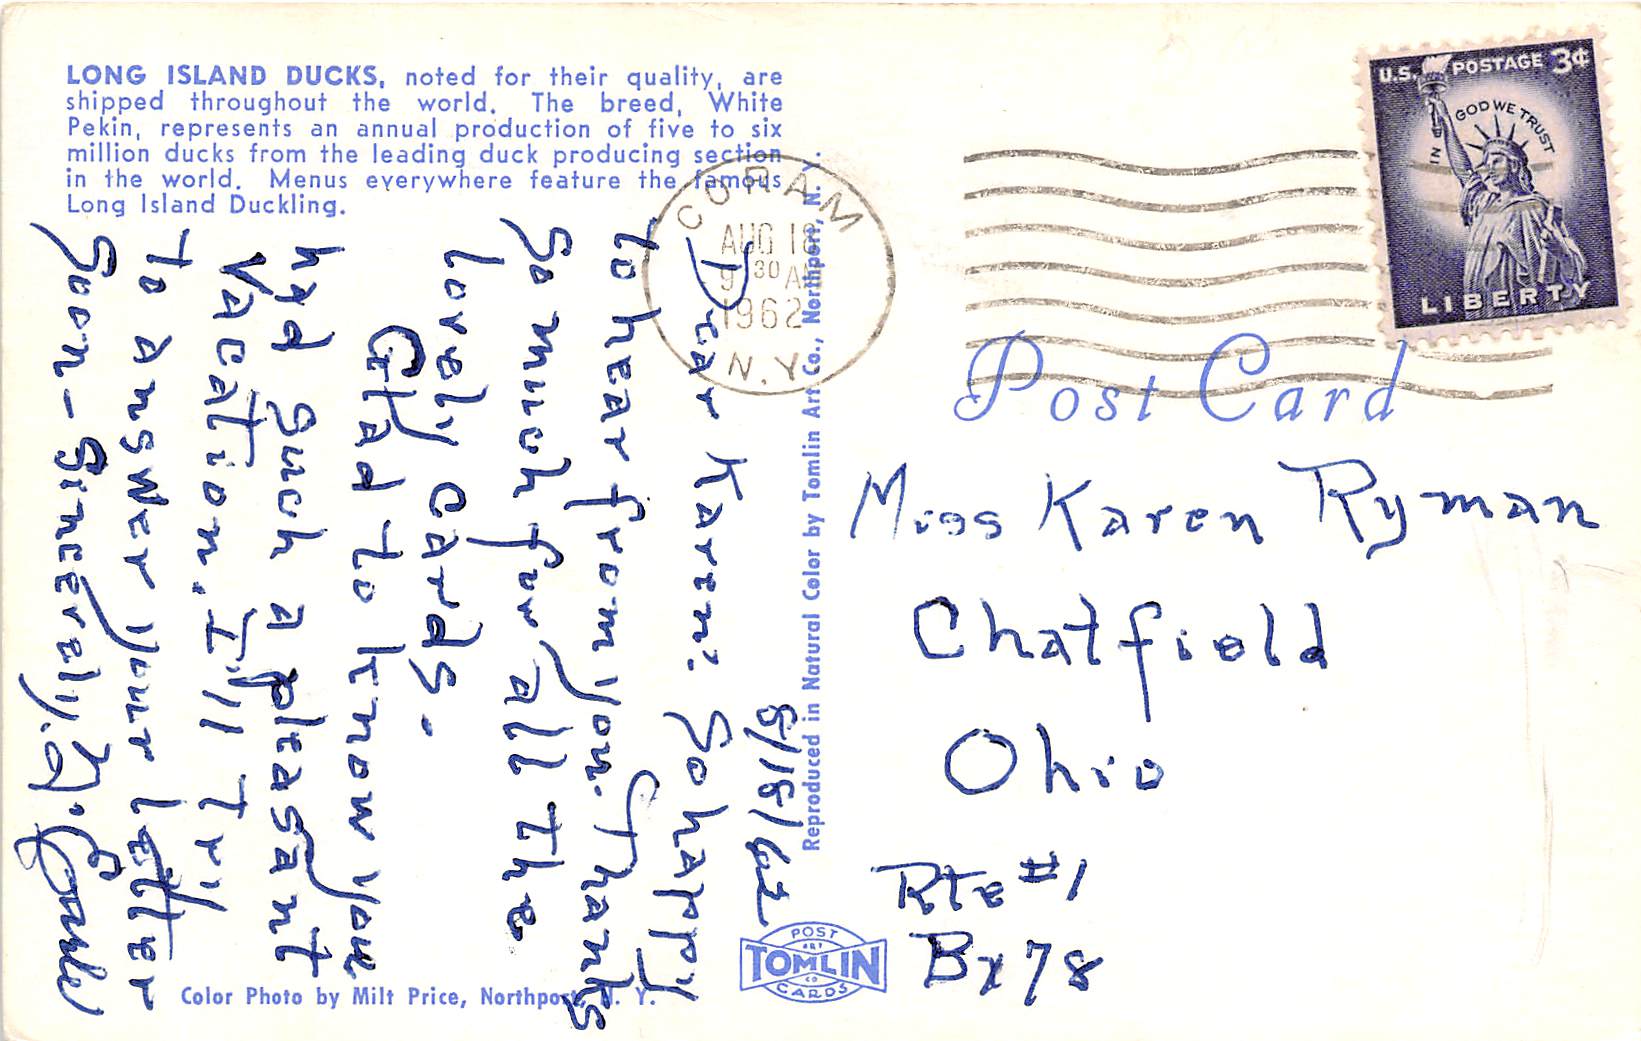 LONG ISLAND DUCKS, noted for their quality, are
shipped throughout the world. The breed, White
Pekin, represents an annual production of five to six
million ducks from the leading duck producing section
in the world. Menus everywhere feature the famous
Long Island Duckling.
8/18/62
Dear Karen: So happy
to hear from you. Thanks
so much for all the
lovely cards.
Glad to know you
had such a pleasant
vacation. I'll try
to answer your letter
soon - Sincerely,
Color Photo by Milt Price, Northport, N. Y.
Reproduced in Natural Color by Tomlin Art Co., Northport, N. Y.
POST
ART
TOMLIN
CO
CARDS
CORAM
AUG 18
9 30 AM
1962
N.Y.
U.S. POSTAGE 3¢
IN GOD WE TRUST
LIBERTY
Post Card
Miss Karen Ryman
Chatfield
Ohio
Rte #1
Bx 78